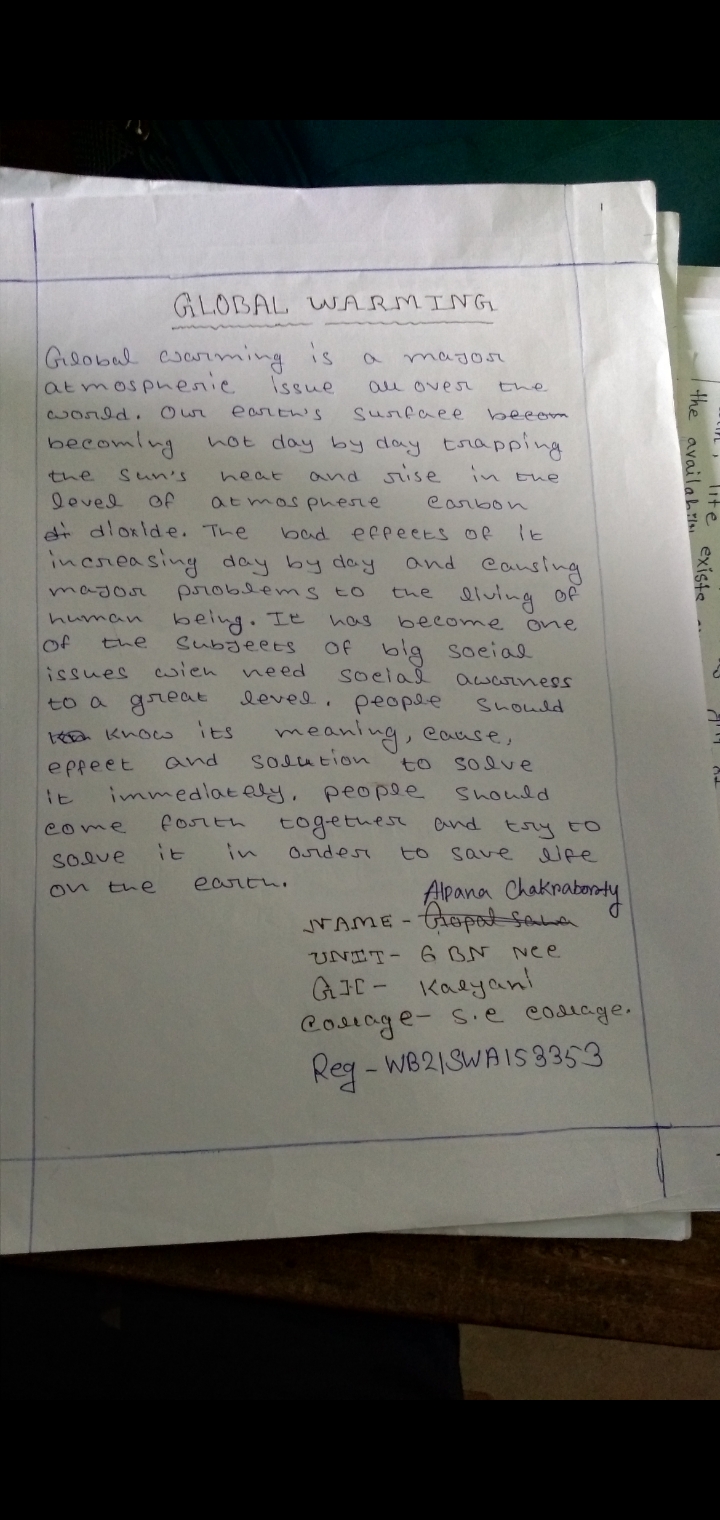 GLOBAL WARMING
Global warming is a major
atmospheric issue all over the
world. Our earth's surface becom
becoming hot day by day trapping
the sun's heat and rise in the
level of atmosphere carbon
di dioxide. The bad effects of it
increasing day by day and causing
major problems to the living of
human being. It has become one
of the subjects of big social
issues wich need social awarness
to a great level. people should
know its meaning, cause,
effect and solution to solve
it immediately. people should
come forth together and try to
solve it in order to save life
on the earth.
Alpana Chakraborty
NAME - Gopal Saha
UNIT - 6 BN NCC
GH - Kalyani
Collage - S.C collage.
Reg - WB21SWA153353
the availability
life existe